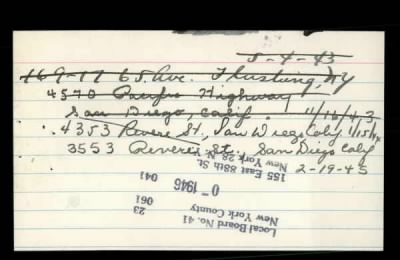 5-4-43
169-17 65 Ave. Flushing, NY
4570 Pacific Highway
San Diego, Calif. 11/16/43
4353 Revere St., San Diego Calif 1/15/44
3553 Revere St. San Diego Calif
2-19-45
Local Board No. 41
New York County
23
061
1946
041
155 East 88th St.
New York 28, N. Y.